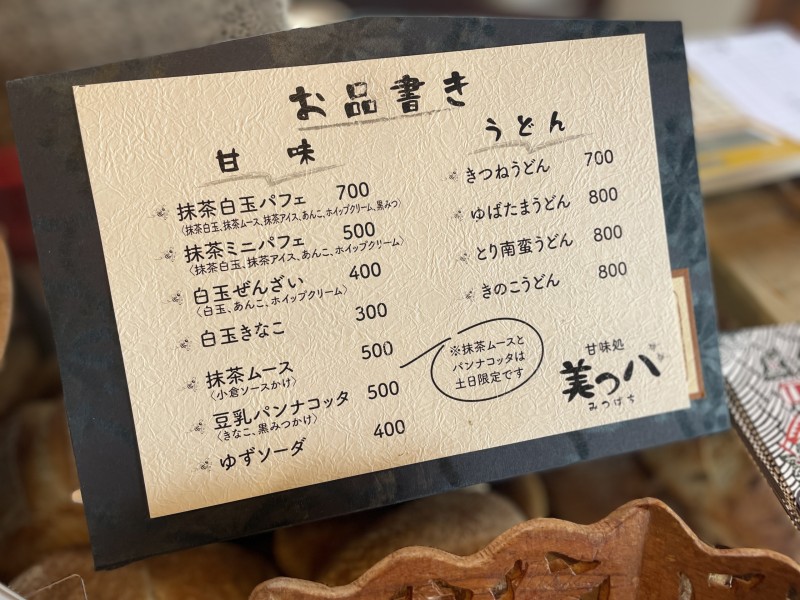 お品書き
甘味
抹茶白玉パフェ 700
〈抹茶白玉、抹茶ムース、抹茶アイス、あんこ、ホイップクリーム、黒みつ〉
抹茶ミニパフェ 500
〈抹茶白玉、抹茶アイス、あんこ、ホイップクリーム〉
白玉ぜんざい 400
〈白玉、あんこ、ホイップクリーム〉
白玉きなこ 300
抹茶ムース 500
〈小倉ソースかけ〉
豆乳パンナコッタ 500
〈きなこ、黒みつかけ〉
ゆずソーダ 400
うどん
きつねうどん 700
ゆばたまうどん 800
とり南蛮うどん 800
きのこうどん 800
※抹茶ムースと
パンナコッタは
土日限定です
甘味処
美つ八
みつばち